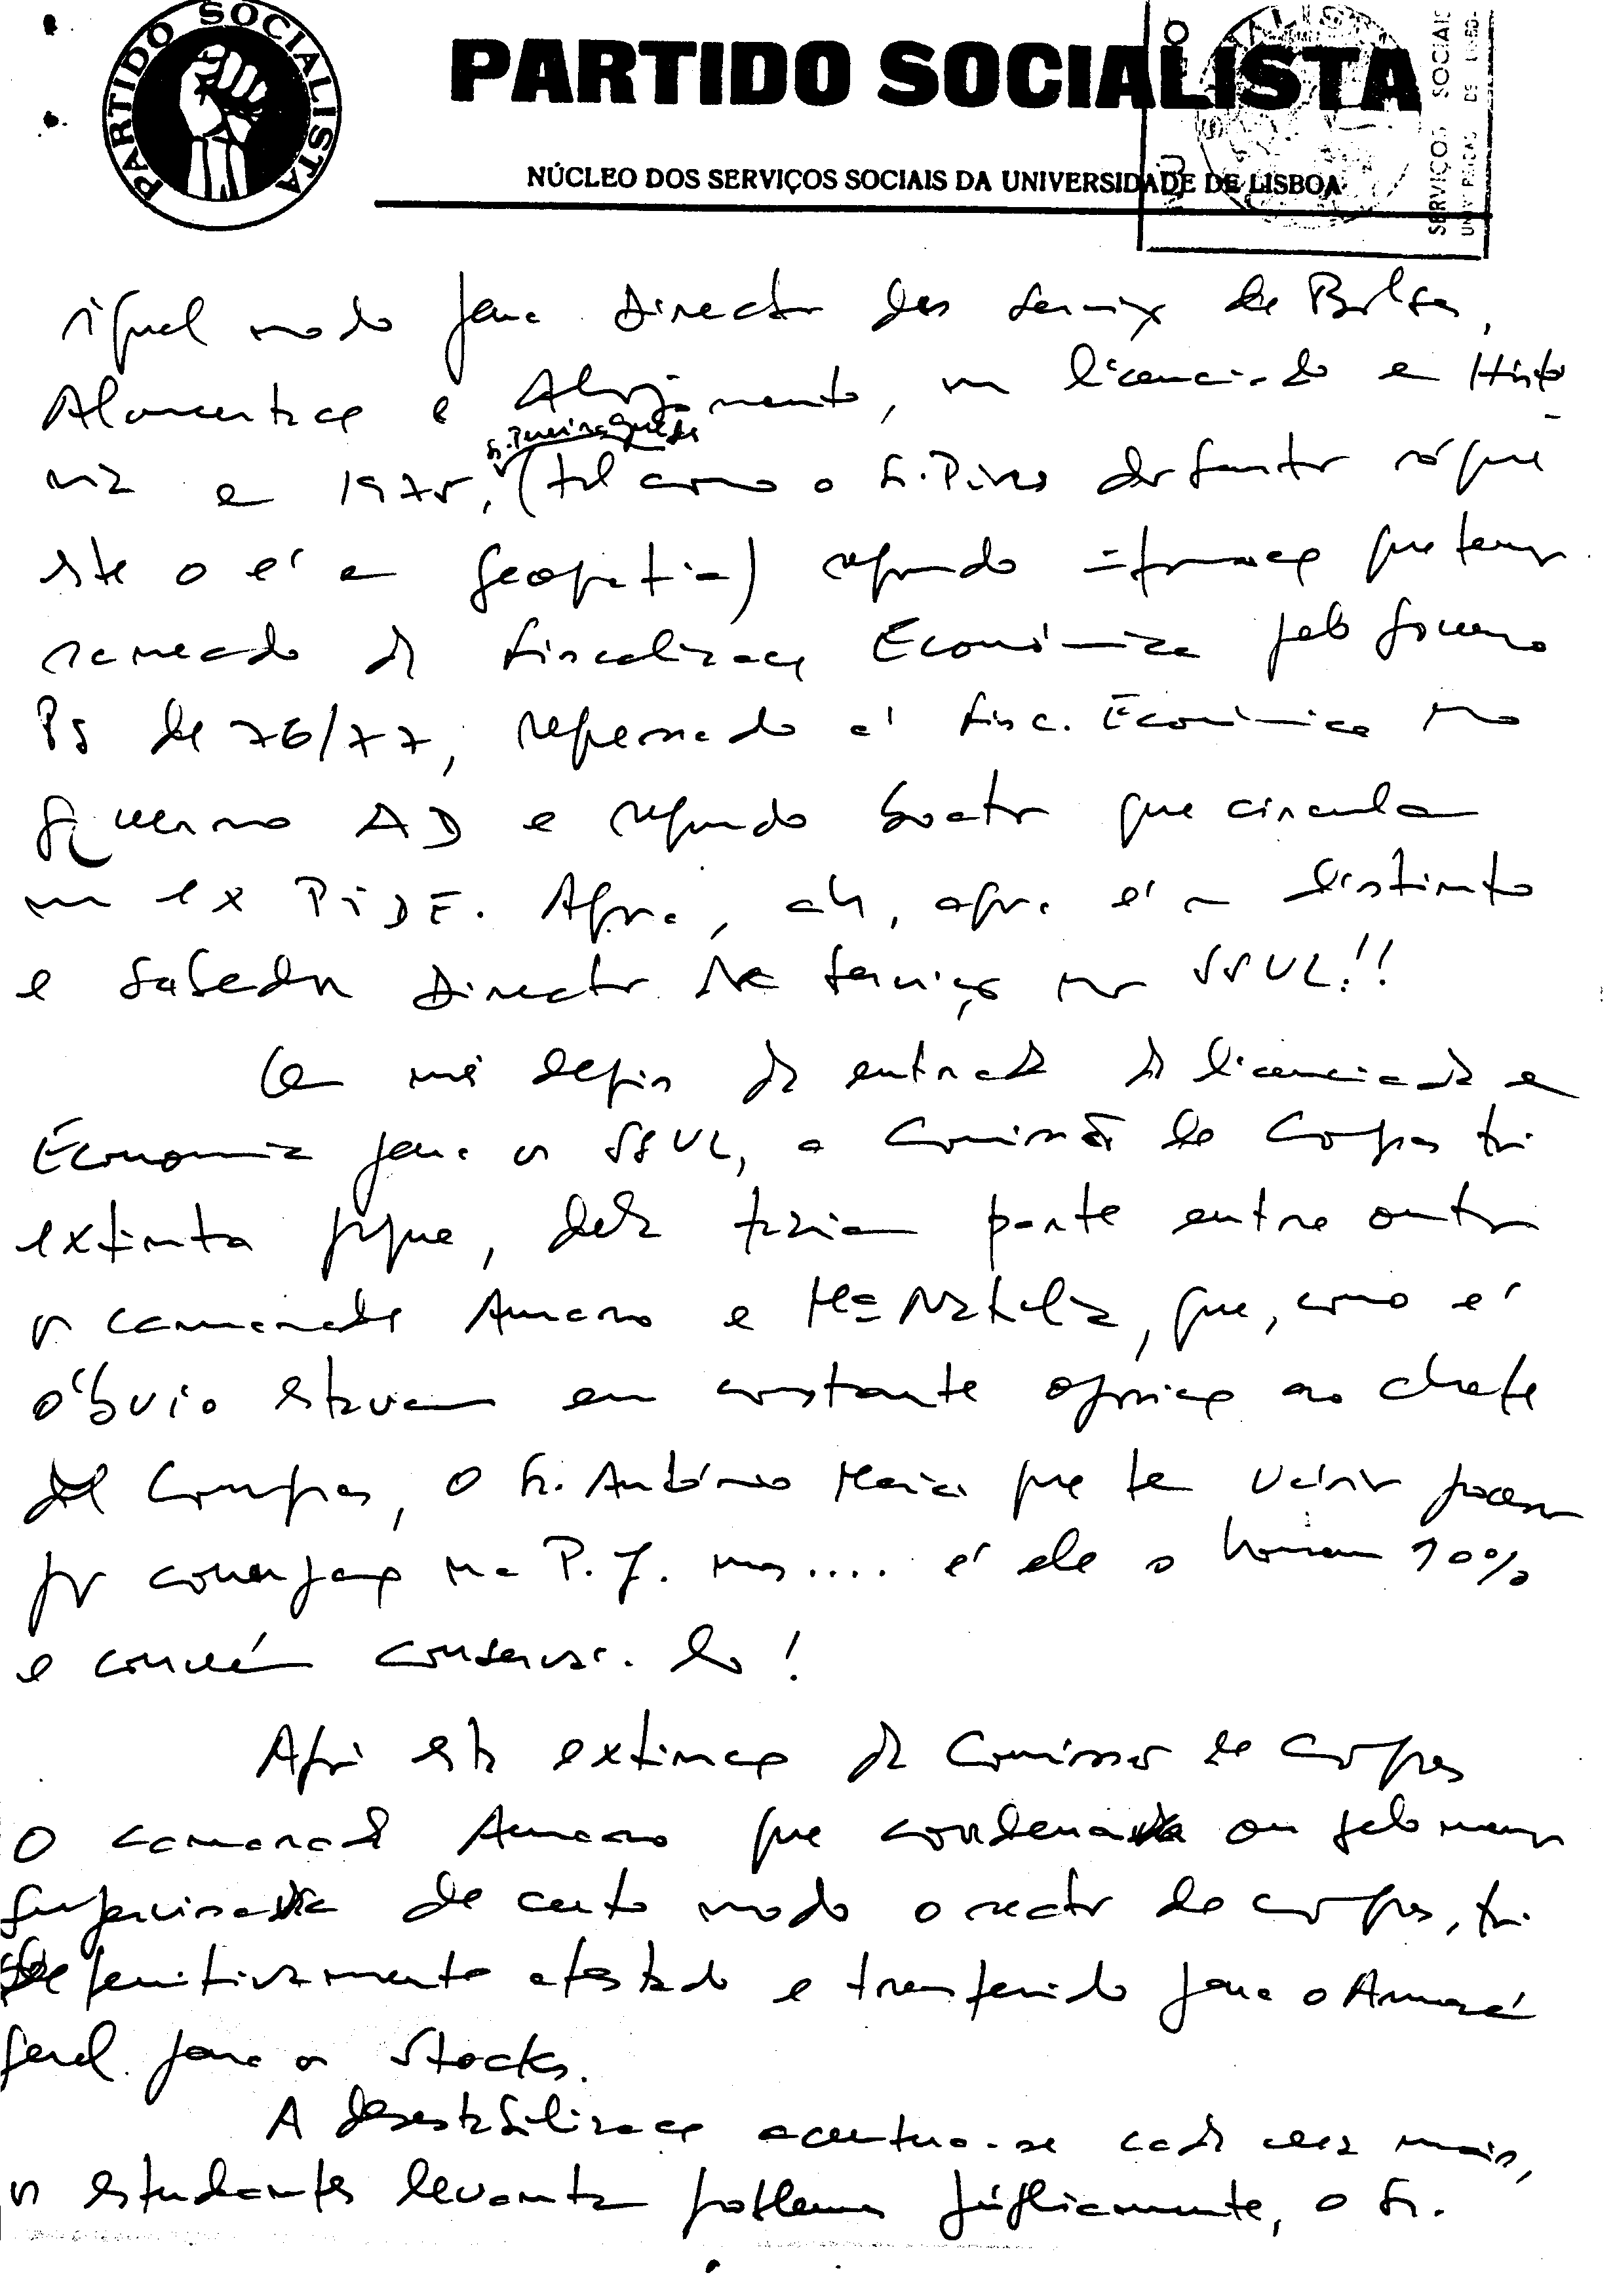 PARTIDO SOCIALISTA
PARTIDO SOCIALISTA
NÚCLEO DOS SERVIÇOS SOCIAIS DA UNIVERSIDADE DE LISBOA
SERVIÇOS SOCIAIS
igual modo para Director dos Serviços de Bolsas,
Alimentação e Alojamento, um licenciado em Histó
Sr. Pereira Guedes
ria em 1975, (tal como o Sr. Pires dos Santos só que
este o é em Geografia) segundo informação que temos
saneado da Fiscalização Económica pelo Governo
PS de 76/77, regressado à Fisc. Económica no
governo AD e segundo boatos que circulam
um ex PIDE. Agora, ah, agora é um distinto
e sabedor Director de Serviços nos SSUL!!
Um mês depois da entrada da licenciada em
Economia para os SSUL, a Comissão de Compras foi
extinta porque, dela faziam parte entre outros
os camaradas Amaro e Mª Natália, que, como é
óbvio estavam em constante oposição ao chefe
de Compras, o Sr. António Maia que tem vários processos
por corrupção na P.J. mas.... é ele o homem 10%
e convém conservá-lo!
Após esta extinção da Comissão de Compras
o camarada Amaro que coordenava ou pelo menos
supervisava de certo modo o sector de compras, foi
definitivamente afastado e transferido para o Armazém
Geral para os Stocks.
A desestabilização acentua-se cada vez mais,
os estudantes levantam problemas públicamente, o Sr.